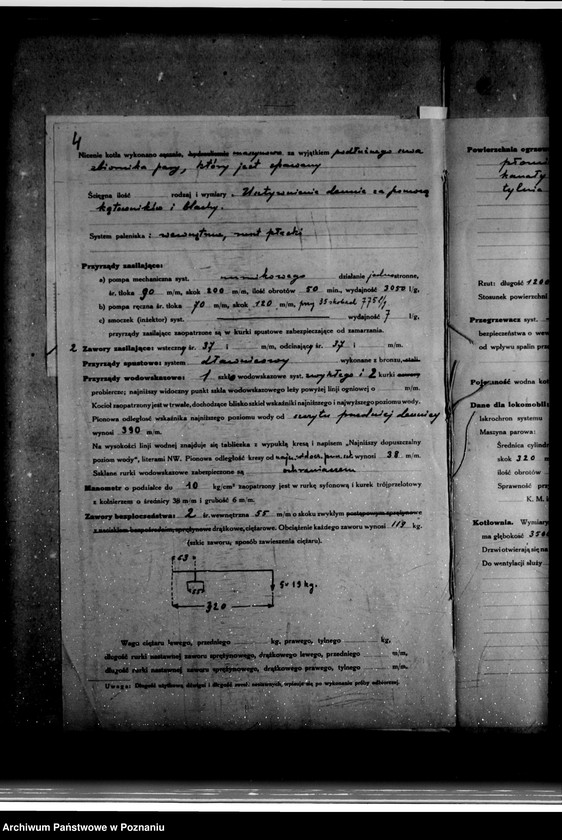 4
Nicenie kotła wykonano ręcznie, hydraulicznie maszynowo, za wyjątkiem podłużnego szwa
zbiornika pary, który jest spawany
Ściągna ilość rodzaj i wymiary. Usztywnienie dennic za pomocą
kątowników i blachy.
System paleniska: wewnętrzne, ruszt płaski
Przyrządy zasilające:
a) pompa mechaniczna syst. nurnikowego działanie jednostronne,
śr. tłoka 90 m/m, skok 200 m/m, ilość obrotów 50 min., wydajność 3050 l/g,
b) pompa ręczna śr. tłoka 70 m/m, skok 120 m/m, przy 35 skokach 775 l/g
c) smoczek (inżektor) syst. wydajność 7 l/g,
przyrządy zasilające zaopatrzone są w kurki spustowe zabezpieczające od zamarzania.
2 Zawory zasilające: wsteczny śr. 37 i m/m, odcinający śr. 37 i m/m.
Przyrządy spustowe: system dławnicowy wykonane z bronzu, stali.
Przyrządy wodowskazowe: 1 szkło wodowskazowe syst. zwykłego i 2 kurki
probiercze; najniższy punkt szkła wodowskazowego leży powyżej linji ogniowej o m/m.
Kocioł zaopatrzony jest w trwałe, dochodzące blisko szkieł wskaźniki najniższego i najwyższego poziomu wody.
Pionowa odległość wskaźnika najniższego poziomu wody od szczytu przedniej dennicy
wynosi 390 m/m.
Na wysokości linji wodnej znajduje się tabliczka z wypukłą kresą i napisem „Najniższy dopuszczalny
poziom wody", literami NW. Pionowa odległość kresy od wynosi 38 m/m.
Szklane rurki wodowskazowe zabezpieczone są ochraniaczem
Manometr o podziałce do 10 kg/cm² zaopatrzony jest w rurkę syfonową i kurek trójprzelotowy
z kołnierzem o średnicy 38 m/m i grubość 6 m/m.
Zawory bezpieczeństwa: 2 śr. wewnętrzna 55 m/m o skoku zwykłym postępowym sprężynowe
z naciskiem bezpośrednim, sprężynowe drążkowe, ciężarowe. Obciążenie każdego zaworu wynosi 119 kg.
(szkic zaworu, sposób zawieszenia ciężaru).
53
55
G=19 kg.
320
Waga ciężaru lewego, przedniego kg, prawego, tylnego kg,
długość rurki nastawnej zaworu sprężynowego, drążkowego lewego, przedniego m/m,
długość rurki nastawnej zaworu sprężynowego, drążkowego prawego, tylnego m/m.
Uwaga: Długość użytkową dźwigni i długość zawl. nastawnych, wpisuje się po wykonaniu próby odbiorczej.
Powierzchnia ogrzew
płomi
kanały
tylnia
Rzut: długość 1200
Stosunek powierzchni
Przegrzewacz syst.
bezpieczeństwa o wew
od wpływu spalin prz
Pojemność wodna kot
Dane dla lokomobil:
Iskrochron systemu
Maszyna parowa:
Średnica cylindr
skok 320 m
ilość obrotów
Sprawność przy
K. M. i
Kotłownia. Wymiary
ma głębokość 3500
Drzwi otwierają się na
Do wentylacji służy
Archiwum Państwowe w Poznaniu